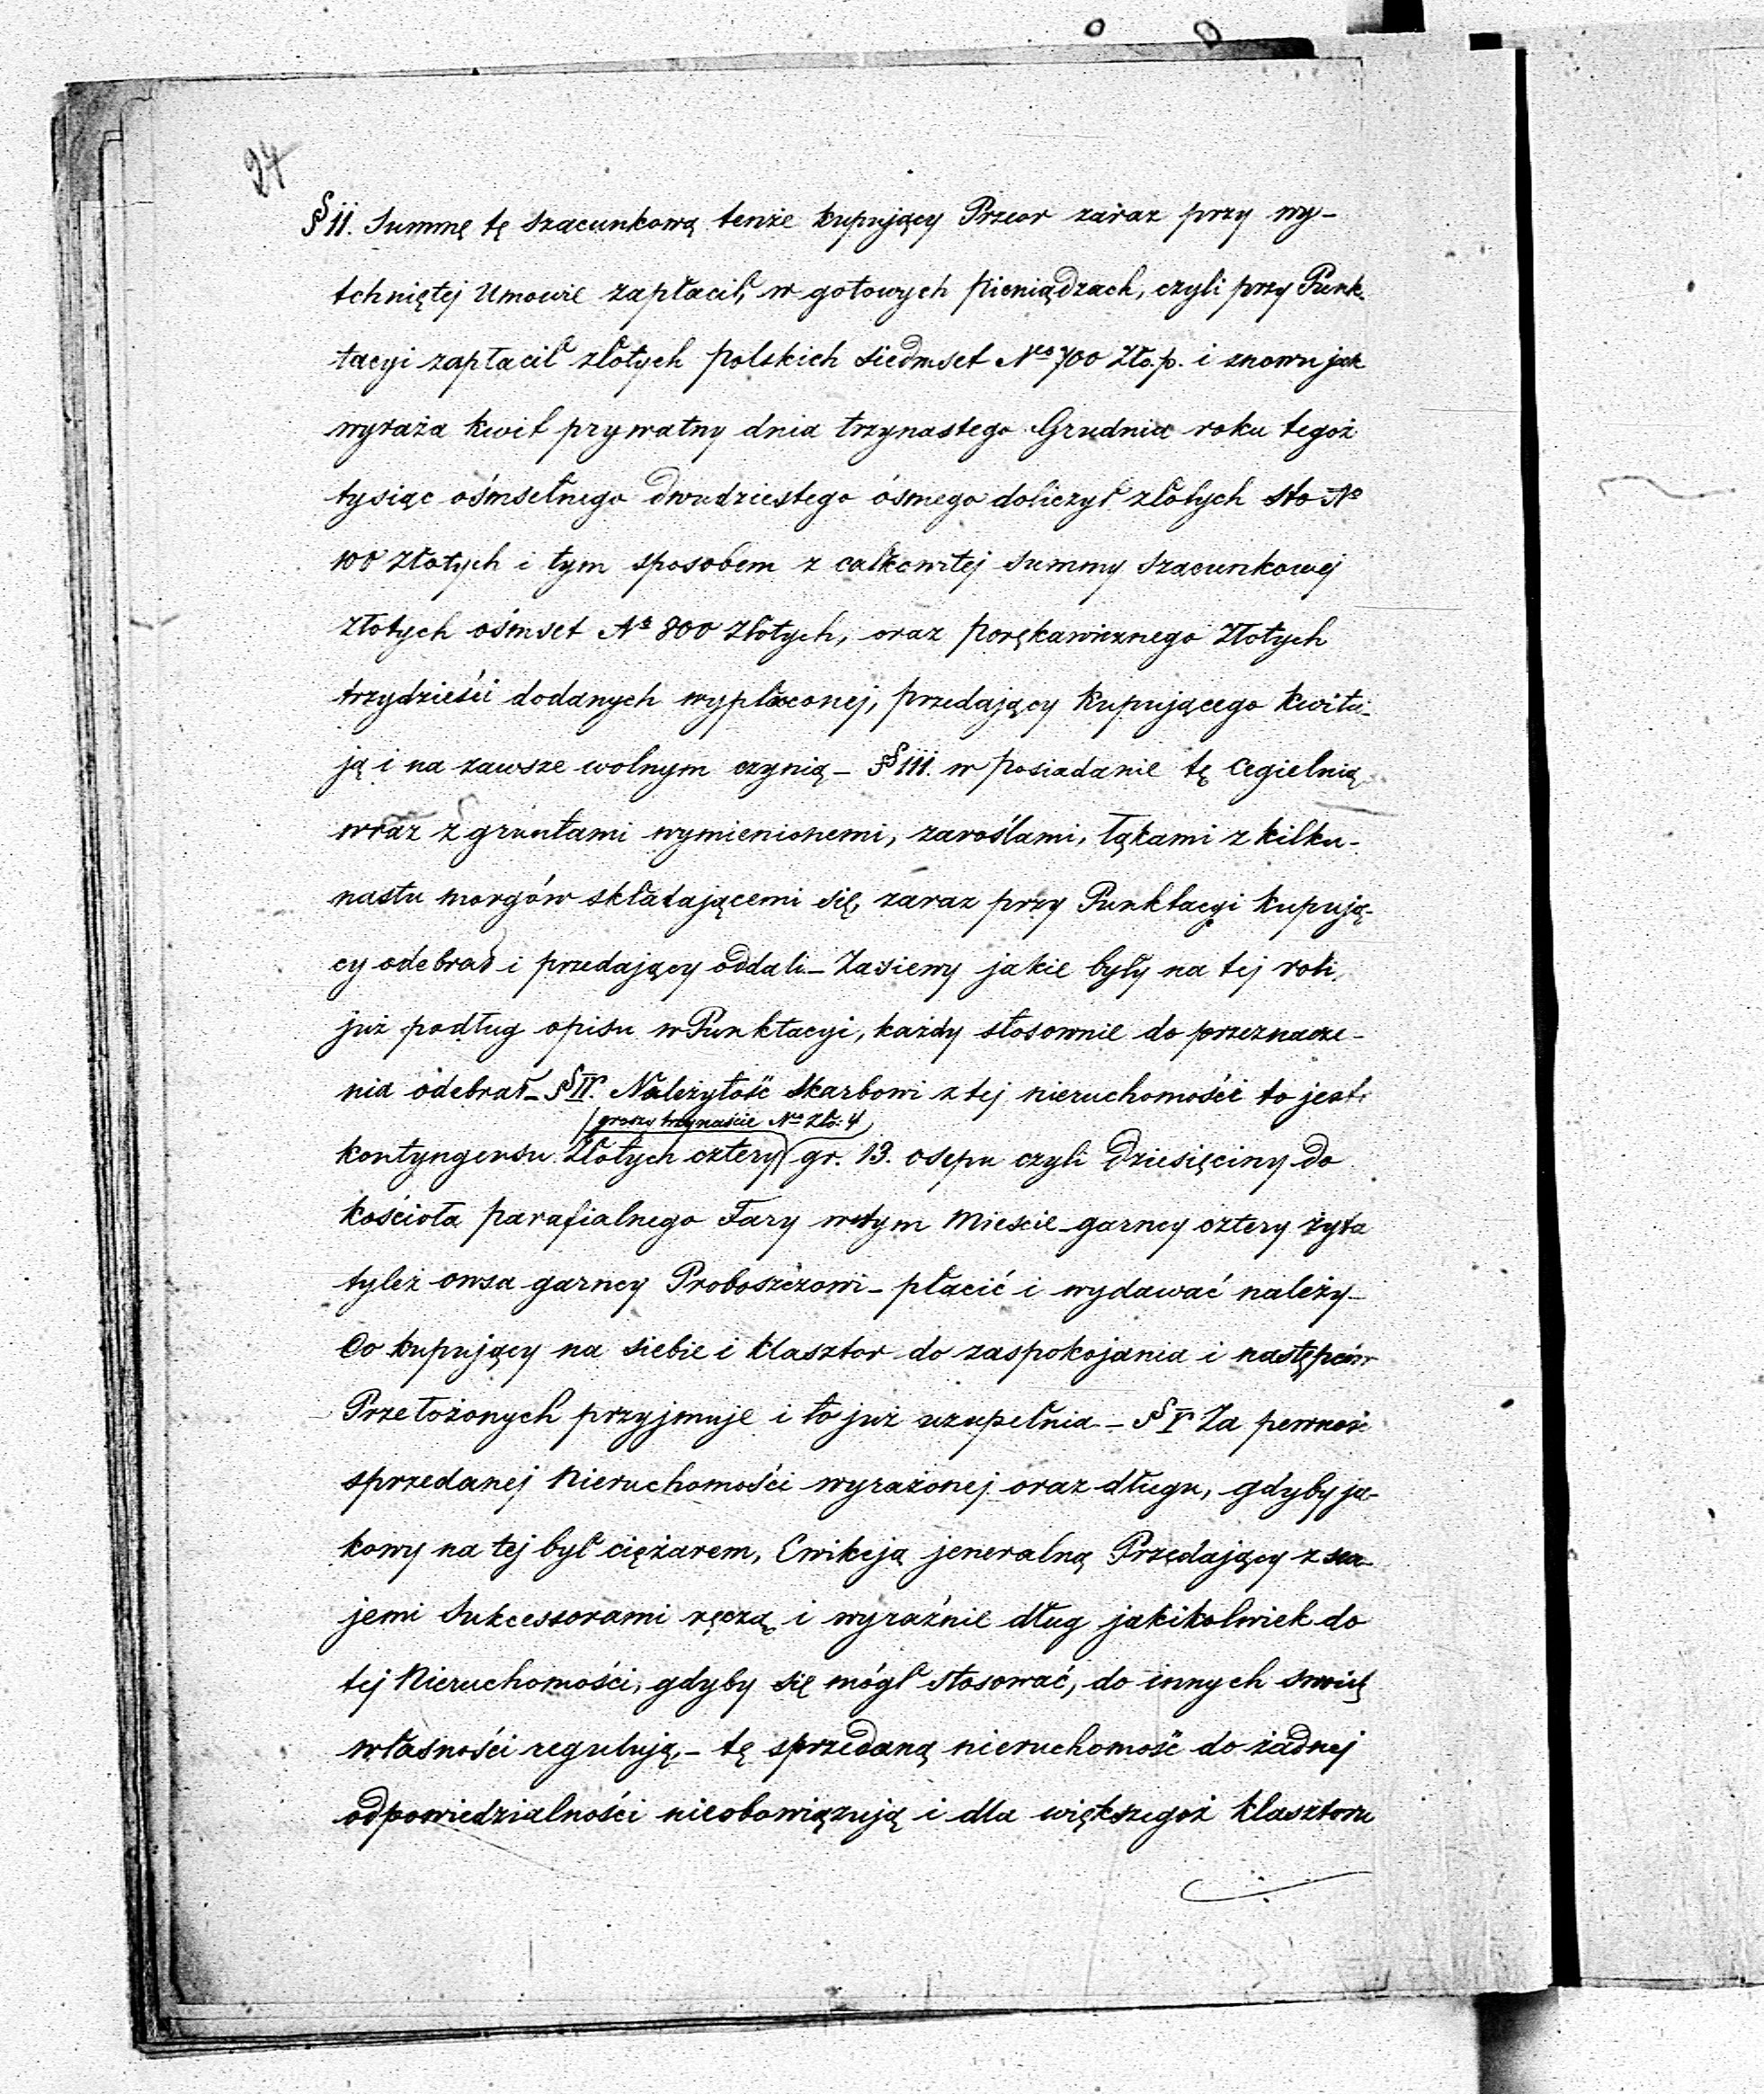 24
§ II. Summę tę szacunkową tenże kupujący Przeor zaraz przy wy-
tchniętej Umowie zapłacił, w gotowych pieniądzach, czyli przy Punk-
tacyi zapłacił złotych polskich siedmset No 700 Zło.p. i znowu jak
wyraża kwit prywatny dnia trzynastego Grudnia roku tegoż
tysiąc ośmsetnego dwudziestego ósmego doliczył złotych sto No
100 Złotych i tym sposobem z całkowitej summy szacunkowej
Złotych ośmset No 800 Złotych, oraz porękawicznego Złotych
trzydzieści dodanych wypłaconej, przedający Kupującego kwitu-
ją i na zawsze wolnym czynią - § III. w posiadanie tę Cegielnią
wraz z gruntami wymienionemi, zaroślami, łąkami z kilku-
nastu morgów składającemi się, zaraz przy Punktacyi kupują-
cy odebrał i przedający oddali - Zasiewy jakie były na tej roli,
już podług opisu w Punktacyi, każdy stosownie do przeznacze-
nia odebrał - § IV. Należytość Skarbowi z tej nieruchomości to jest:
groszy trzynaście No Zło: 4
kontyngensu Złotych cztery gr. 13. osepu czyli Dziesięciny do
kościoła parafialnego Fary w tym Mieście - garncy cztery żyta
tyleż owsa garncy Proboszczowi - płacić i wydawać należy -
Co kupujący na siebie i klasztor do zaspokojania i następców
Przełożonych przyjmuje i to już uzupełnia - § V Za pewność
sprzedanej Nieruchomości wyrażonej oraz długu, gdyby ja-
kowy na tej był ciężarem, Ewikcją jeneralną Przedający z swo-
jemi Sukcessorami ręczą i wyraźnie dług jakikolwiek do
tej Nieruchomości, gdyby się mógł stosować, do innych
własności regulują, - tę sprzedaną nieruchomość do żadnej
odpowiedzialności nieobowiązują i dla większegoż klasztoru